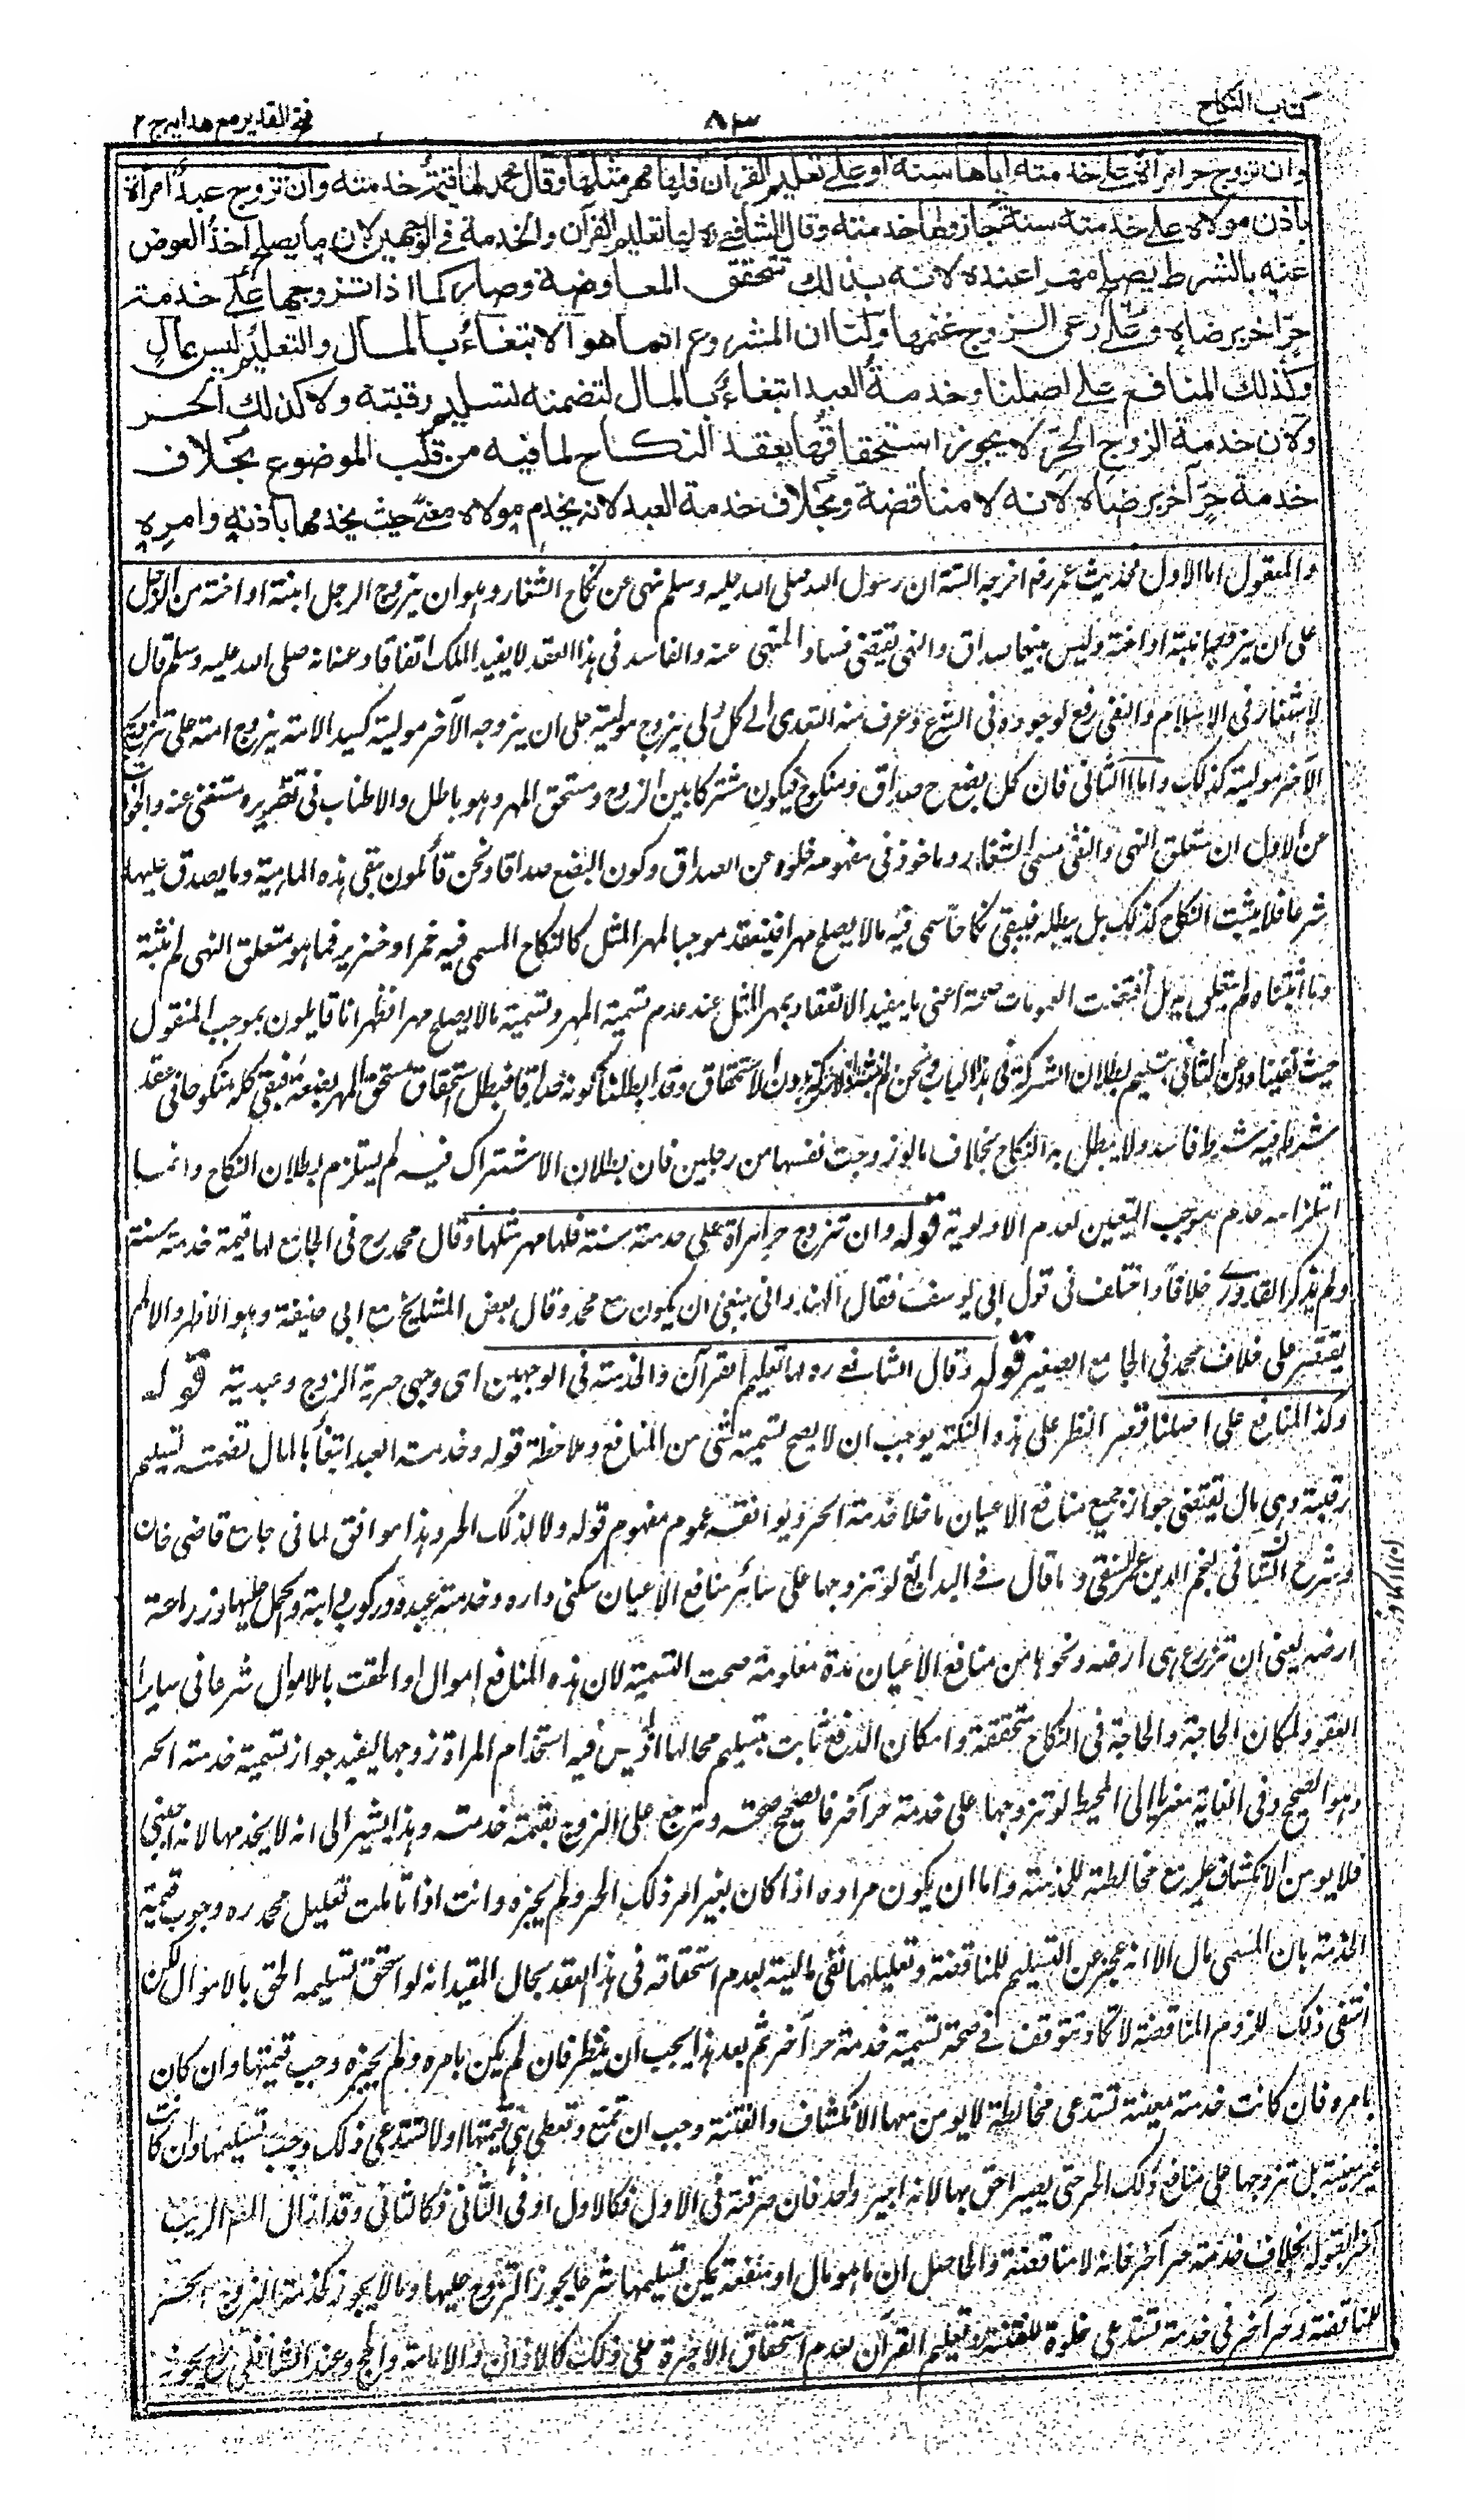 كتاب النكاح
٨٣
فتح القدير مع هدايه ج ٢
وان تزوج حر امرأة على خدمته اياها سنة او على تعليم القرآن فلها مهر مثلها وقال محمد لها قيمة خدمته وان تزوج عبد امرأة
باذن مولاه على خدمته سنة جاز ولها خدمته وقال الشافعي ره لها تعليم القرآن والخدمة في الوجهين لان ما يصلح اخذ العوض
عنه بالشرط يصلح مهرا عنده لانه بذلك تتحقق المعاوضة وصار كما اذا تزوجها على خدمة
حر آخر برضاه وعلى رعي الزوج غنمها ولنا ان المشروع انما هو الابتغاء بالمال والتعليم ليس بمال
وكذلك المنافع على اصلنا وخدمة العبد ابتغاء بالمال لتضمنه تسليم رقبته ولا كذلك الحر
ولان خدمة الزوج الحر لا يجوز استحقاقها بعقد النكاح لما فيه من قلب الموضوع بخلاف
خدمة حر آخر برضاه لانه لا مناقضة وبخلاف خدمة العبد لانه يخدم مولاه معنى حيث يخدمها باذنه وامره
والمعقول اما الاول فحديث عمر رض اخرجه الستة ان رسول الله صلى الله عليه وسلم نهى عن نكاح الشغار وهو ان يزوج الرجل ابنته او اخته من الرجل
على ان يزوجه ابنته او اخته وليس بينهما صداق والنهي يقتضي فساد المنهي عنه والفاسد في هذا العقد لا يفيد الملك اتفاقا وعنه انه صلى الله عليه وسلم قال
لا شغار في الاسلام والنفي رفع لوجوده في الشرع وعرف منه التعدي الى كل ولي يزوج موليته على ان يزوجه الآخر موليته كسيد الامة يزوج امته على تزويج
الآخر موليته كذلك واما الثاني فان كل بضع ح صداق ومنكوح فيكون مشتركا بين الزوج ومستحق المهر وهو باطل والاطناب في تقريره مستغنى عنه والجواب
عن الاول ان متعلق النهي والنفي مسمى الشغار وماخوذ في مفهومه خلوه عن الصداق وكون البضع صداقا ونحن قائلون بنفي هذه الماهية وما يصدق عليها
شرعا فلا يثبت النكاح كذلك بل يبطله فيبقى نكاحا سمى فيه ما لا يصلح مهرا فينعقد موجبا لمهر المثل كالنكاح المسمى فيه خمرا وخنزير فما هو متعلق النهي لم نثبته
وما اثبتناه لم يتعلق به بل اقتضت العمومات صحته اعني ما يفيد الانعقاد بمهر المثل عند عدم تسمية المهر وتسمية ما لا يصلح مهرا فظهر انا قايلون بموجب المنقول
حيث نفيناه وعن الثاني بتسليم بطلان الشركة في هذا الباب ونحن لم نثبته اذ لا شركة بدون الاستحقاق وقد ابطلنا كونه صداقا فبطل استحقاق مستحق المهر بضعه فبقي كله منكوحا في عقد
شرط فيه شرط فاسد ولا يبطل به النكاح بخلاف ما لو زوجت نفسها من رجلين فان بطلان الاشتراك فيه لم يستلزم بطلان النكاح وانما
استلزامه عدم موجب التعيين لعدم الاولوية قوله وان تزوج حر امراة على خدمته سنة فلها مهر مثلها وقال محمد رح في الجامع لها قيمة خدمته سنة
ولم يذكر القدوري خلافا واختلف في قول ابي يوسف فقال الهندواني ينبغي ان يكون مع محمد وقال بعض المشايخ مع ابي حنيفة وهو الاظهر والا لم
يقتصر على خلاف محمد في الجامع الصغير قوله وقال الشافعي ره لها تعليم القرآن والخدمة في الوجهين اى وجهي حرية الزوج وعبديته قوله
وكذا المنافع على اصلنا قصر النظر على هذه النكتة يوجب ان لا يصح تسمية شئ من المنافع وملاحظة قوله وخدمة العبد ابتغاء بالمال تضمنه تسليم
رقبته وهي مال يقتضي جواز جميع منافع الاعيان ما خلا خدمة الحر ويوافقه عموم مفهوم قوله ولا كذلك الحر وهذا موافق لما في جامع قاضي خان
وشرح الشافي لنجم الدين عمر النسفي وما قال في البدائع لو تزوجها على سائر منافع الاعيان سكنى داره وخدمة عبده وركوب دابته والحمل عليها وزراعة
ارضه يعني ان تزرع هي ارضه ونحوها من منافع الاعيان مدة معلومة صحت التسمية لان هذه المنافع اموال او الحقت بالاموال شرعا في سائر
العقود لمكان الحاجة والحاجة في النكاح متحققة وامكان الدفع ثابت بتسليم محالها اذ ليس فيه استخدام المراة زوجها ليفيد جواز تسمية خدمة الحر
وهو الصحيح وفي الغاية معزيا الى المحيط لو تزوجها على خدمة حر آخر فالصحيح صحته وترجع على الزوج بقيمة خدمته وهذا يشير الى انه لا يخدمها لانه اجنبي
فلا يومن الانكشاف عليه مع مخالطته للخدمة واما ان يكون مراده اذا كان بغير امر ذلك الحر ولم يجزه وانت اذا تاملت تعليل محمد ره وجوب قيمة
الخدمة بان المسمى مال الا انه عجز عن التسليم للمناقضة وتعليلهما نفي ماليته بعدم استحقاقه في هذا العقد بحال المقيد انه لو استحق تسليمه الحق بالاموال لكن
انتفى ذلك للزوم المناقضة لا تكاد تتوقف في صحة تسمية خدمة حر آخر ثم بعد هذا يجب ان ينظر فان لم يكن بامره ولم يجزه وجب قيمتها وان كان
بامره فان كانت خدمة معينة تستدعي مخالطة لا يومن معها الانكشاف والفتنة وجب ان تمنع وتعطى هي قيمتها او لا تستدعي ذلك وجب تسليمها وان كانت
غير معينة بل تزوجها على منافع ذلك الحر حتى يصير احق بها لانه اجير واحد فان صرفته في الاول فكالاول او في الثاني فكالثاني وقد ازال المص الريب
آخرا بقوله بخلاف خدمة حر آخر فانه لا مناقضة والحاصل ان ما هو مال او منفعة يمكن تسليمها شرعا يجوز التزوج عليها وما لا يجوز كخدمة الزوج الحر
للمناقضة وحر آخر في خدمة تستدعي خلوة للفتنة وتعليم القرآن لعدم استحقاق الاجرة على ذلك كالاذان والامامة والحج وعند الشافعي رح يجوز